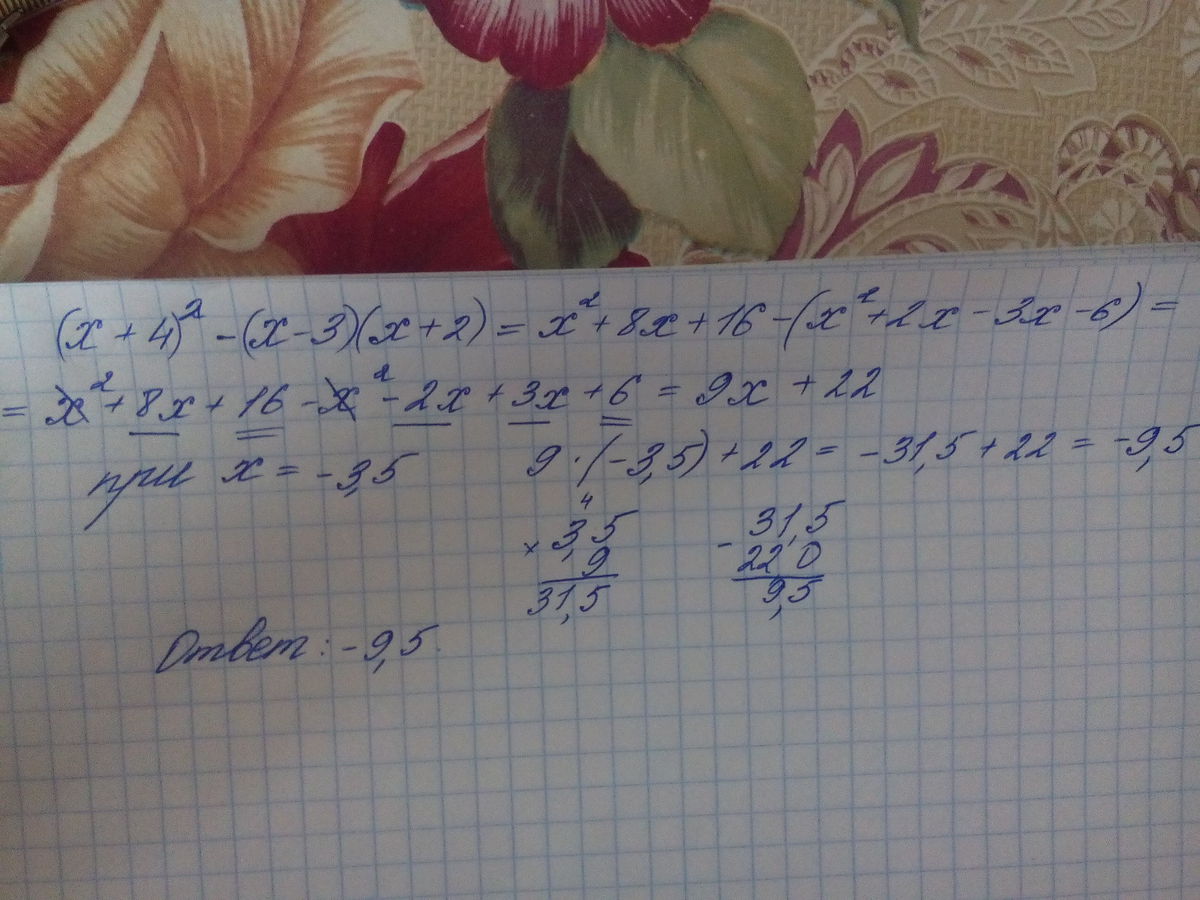 (x + 4)² - (x - 3)(x + 2) = x² + 8x + 16 - (x² + 2x - 3x - 6) =
= x² + 8x + 16 - x² - 2x + 3x + 6 = 9x + 22
при x = -3,5 9 · (-3,5) + 22 = -31,5 + 22 = -9,5
4
× 3,5 - 31,5
9 22 0
31,5 9,5
Ответ: -9,5.